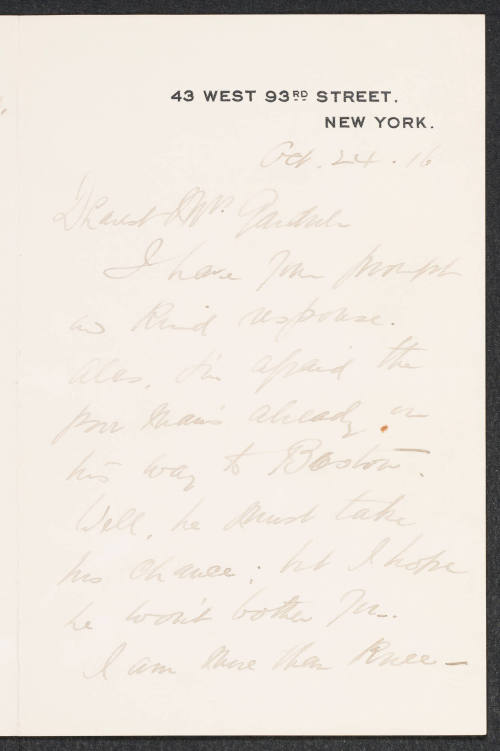 43 WEST 93RD STREET.
NEW YORK.
Oct. 24. 16
Dearest Mrs. Gardner
I have your prompt
and kind response.
Alas, I'm afraid the
poor man's already on
his way to Boston.
Well, he must take
his chance; but I hope
he won't bother you.
I am more than knee-